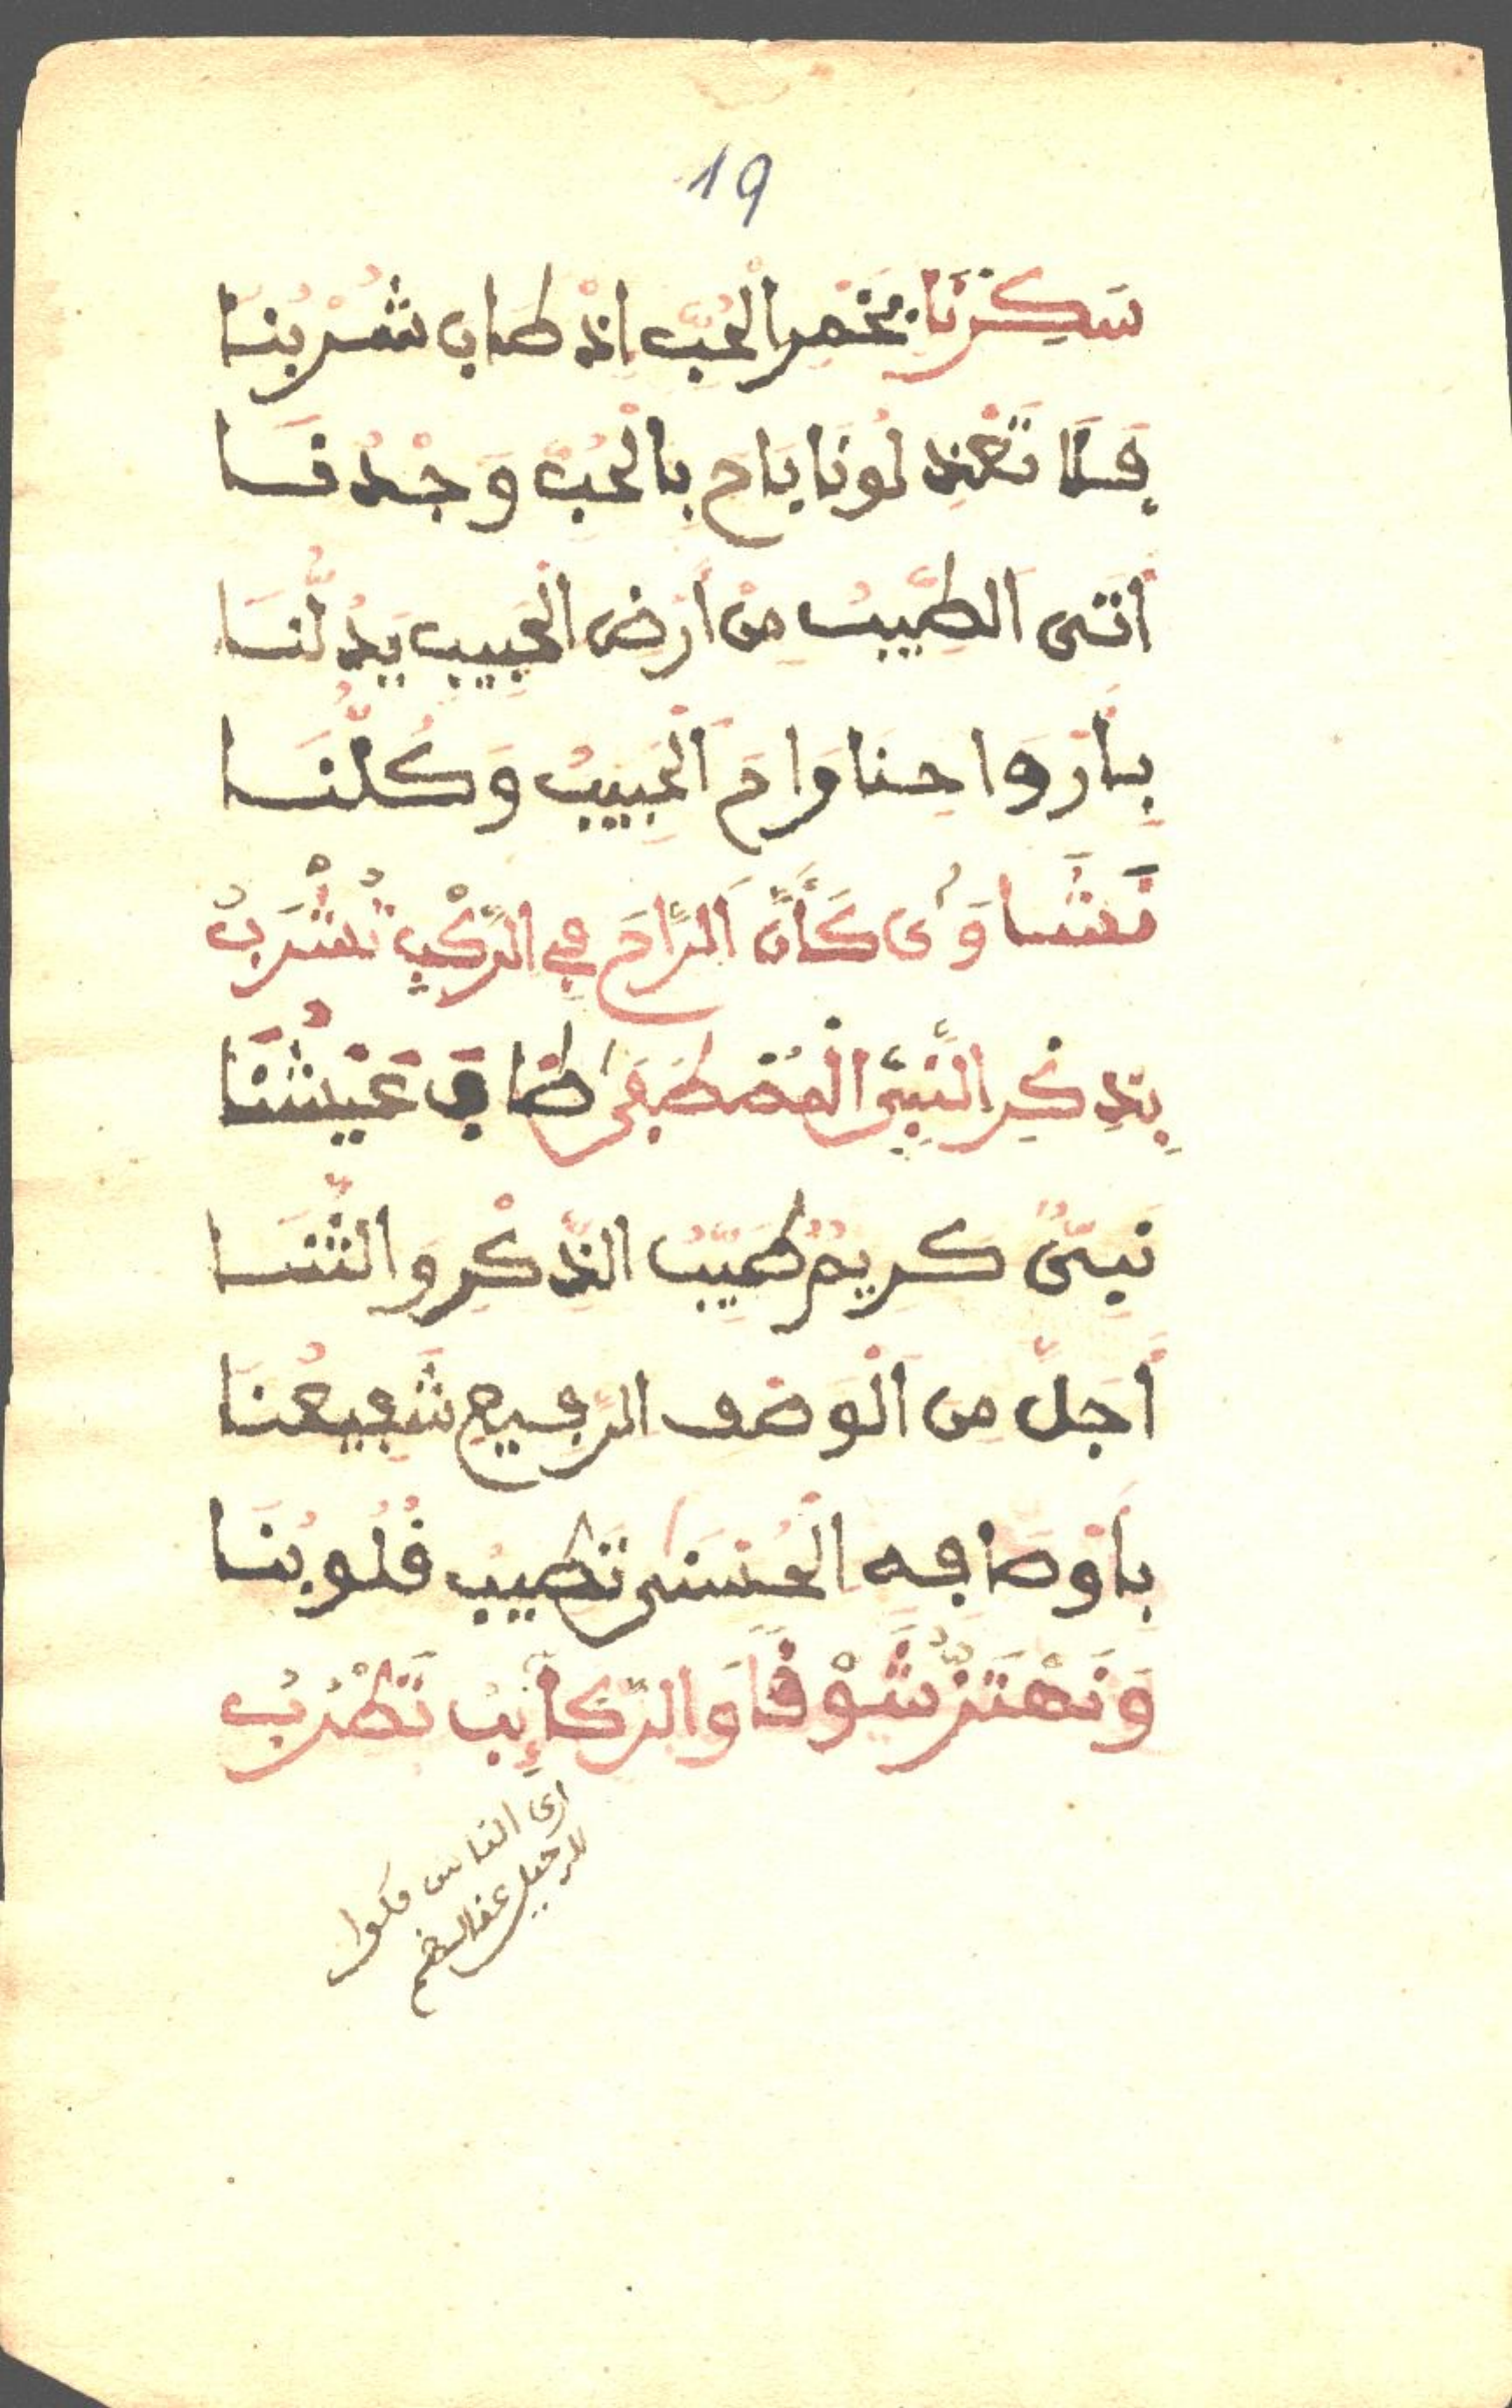 19
سَكِرْنَا بِخَمْرِ الْحُبِّ إِذْ طَابَ شُرْبُنَا
فَلَا تَعْذِلُونَا بَاحَ بِالْحُبِّ وَجْدُنَا
أَتَى الطَّبِيبُ مِنْ أَرْضِ الْحَبِيبِ يَدُلُّنَا
بِأَرْوَاحِنَا رَاحَ الْحَبِيبُ وَكُلُّنَا
نَشَاوَىٰ كَأَنَّ الرَّاحَ فِي الرَّكْبِ تُشْرَبُ
بِذِكْرِ النَّبِيِّ الْمُصْطَفَىٰ طَابَ عَيْشُنَا
نَبِيٌّ كَرِيمٌ طَيِّبُ الذِّكْرِ وَالثَّنَا
أَجَلُّ مِنَ الْوَصْفِ الرَّفِيعِ شَفِيعُنَا
بِأَوْصَافِهِ الْحُسْنَىٰ تَطِيبُ قُلُوبُنَا
وَنَهْتَزُّ شَوْقًا وَالرَّكَائِبُ تَطْرُبُ
ارى الناس